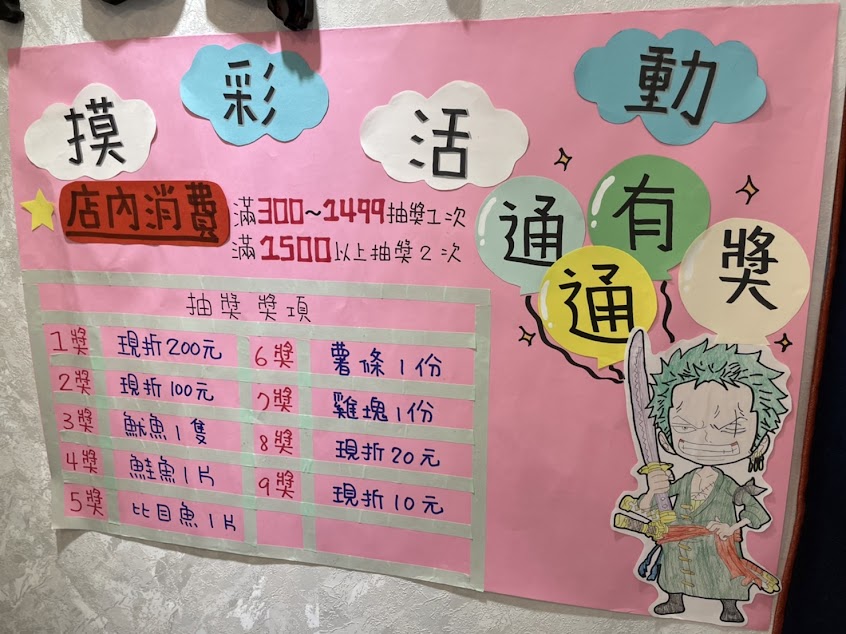 摸彩活動
店內消費
滿300~1499抽獎1次
滿1500以上抽獎2次
通通有獎
抽獎獎項
1獎 現折200元
2獎 現折100元
3獎 魷魚1隻
4獎 鮭魚1片
5獎 比目魚1片
6獎 薯條1份
7獎 雞塊1份
8獎 現折20元
9獎 現折10元